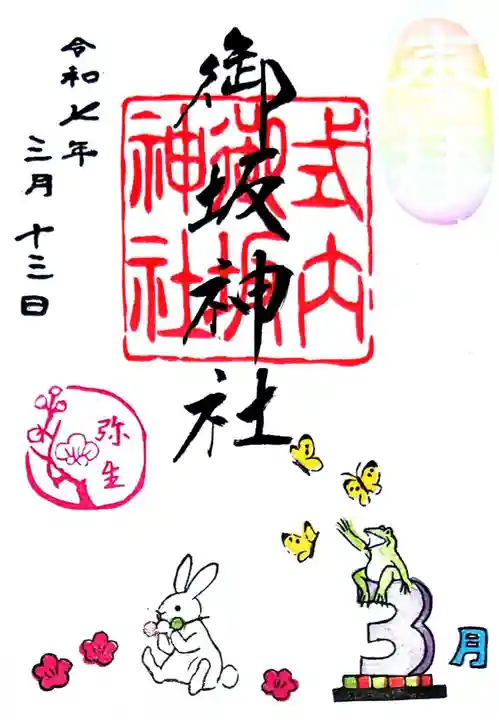 奉拝
御坂神社
式内
御坂
神社
令和七年
三月十三日
弥生
3月